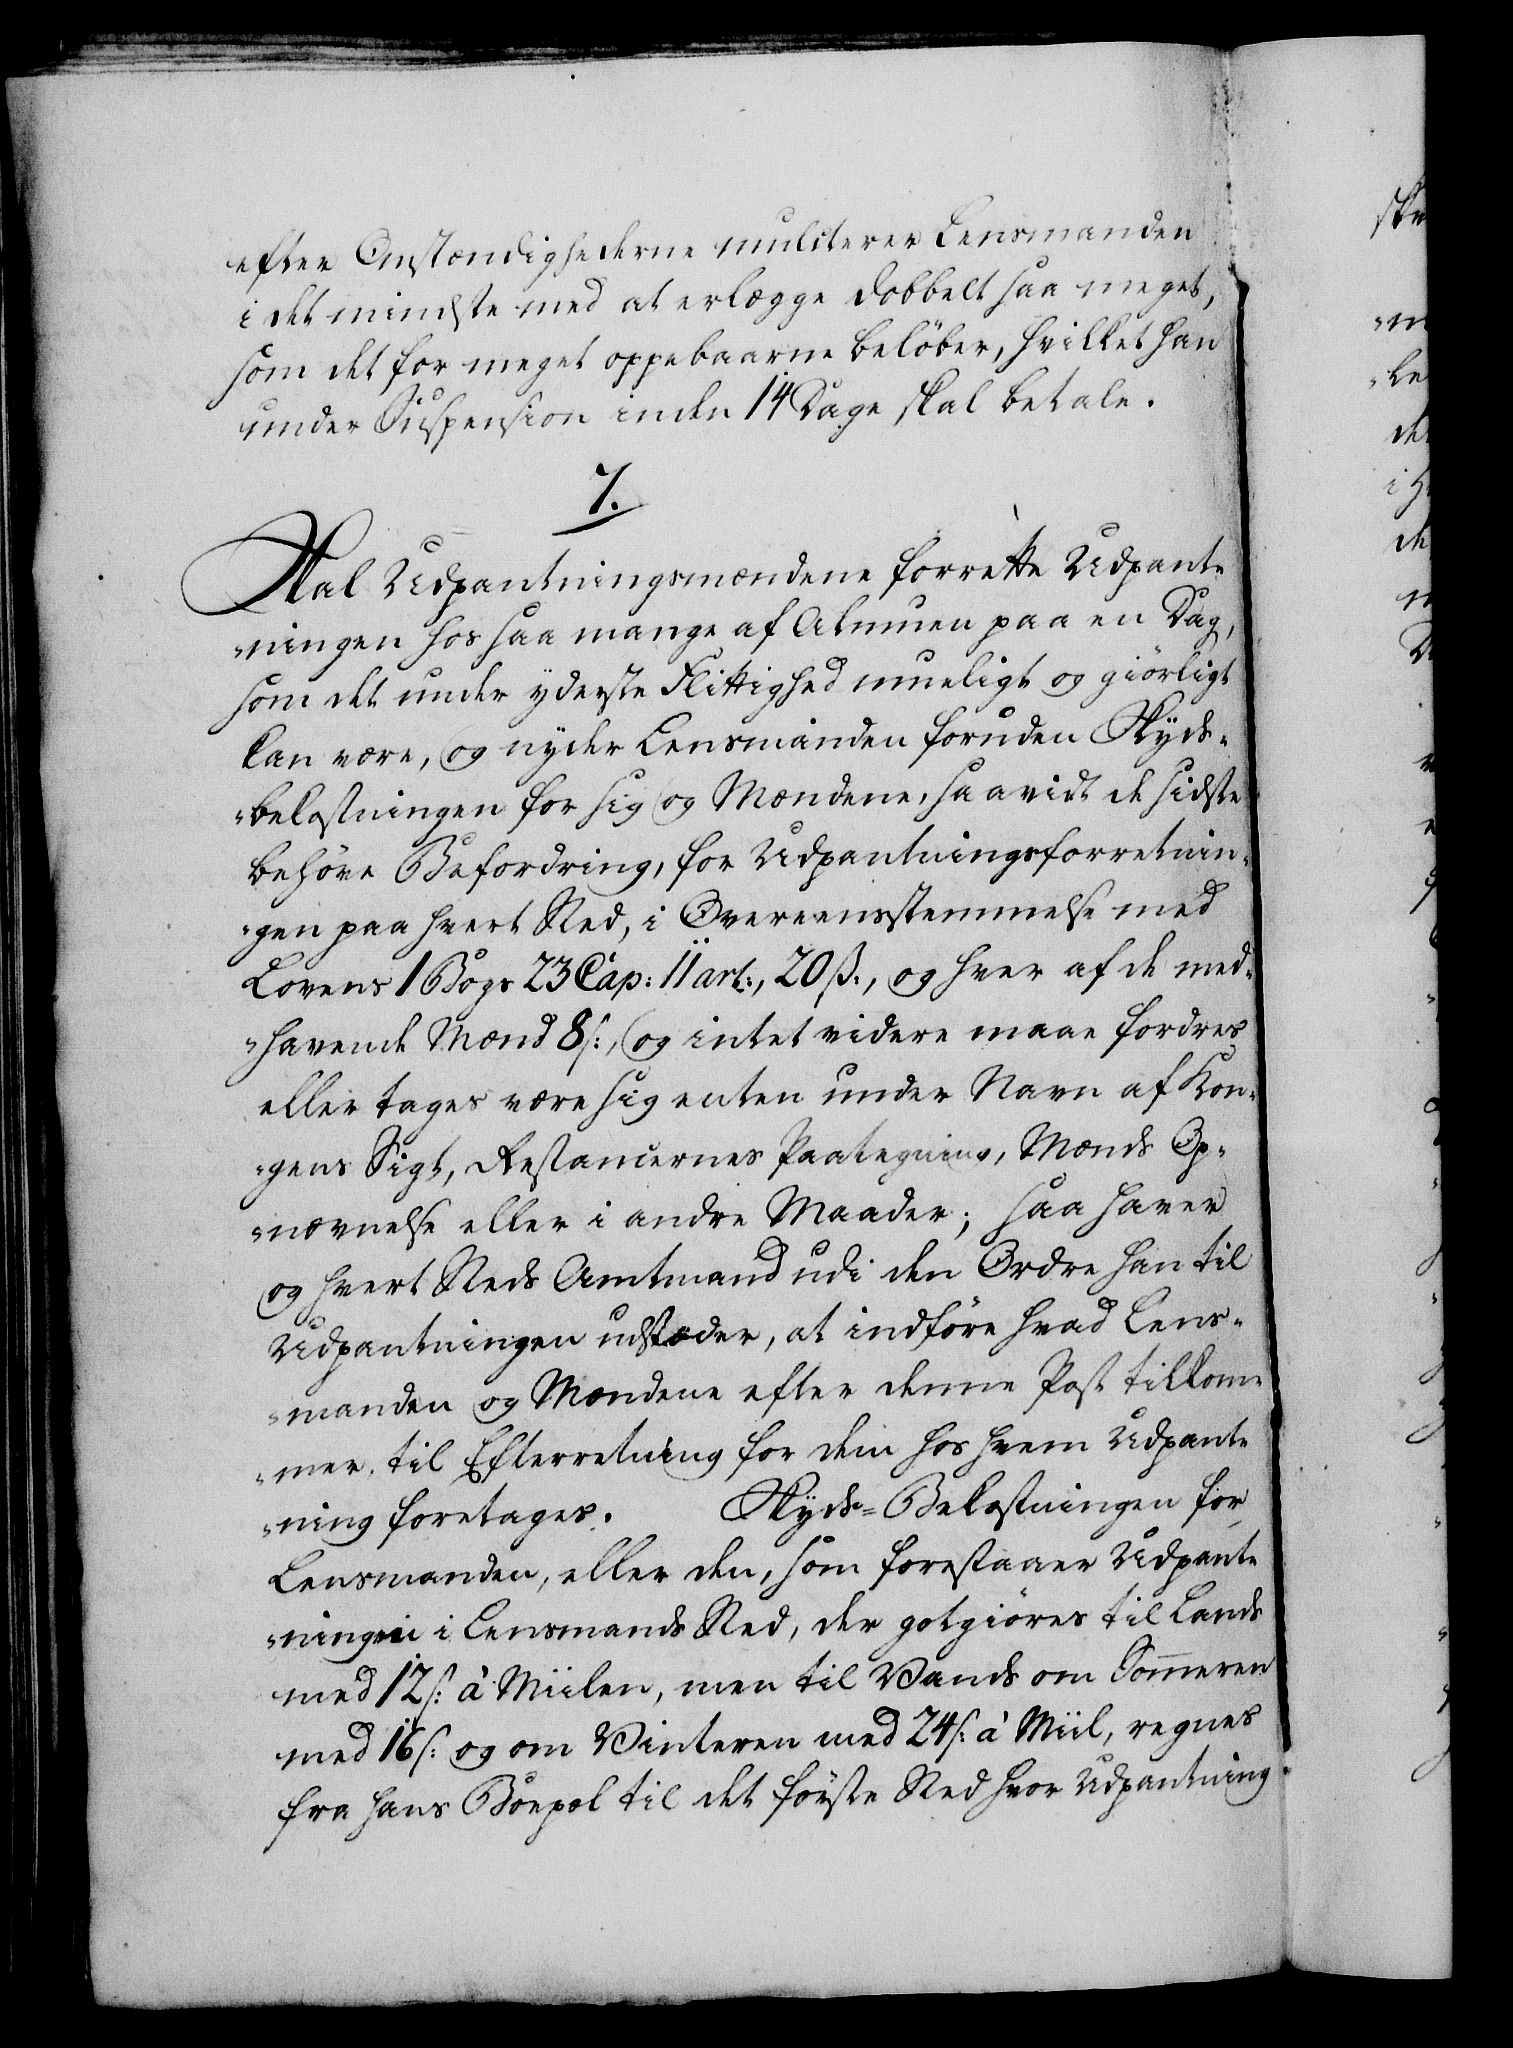 efter Omstændighederne mulcterer Lensmanden
i det mindste med at erlægge dobbelt saa meget,
som det for meget oppebaarne beløber, hvilket han
under Suspension inden 14 Dage skal betale.
7.
Skal Udpantningsmændene forrette Udpant-
„ningen hos saa mange af Almuen paa en Dag,
som det under yderste Flittighed mueligt og giørligt
kan være, og nyder Lensmanden foruden Skyds-
„bekostningen for sig og Mændene, saavidt de sidste
behøve Befordring, for Udpantningsforretnin-
„gen paa hvert Sted, i Overeensstemmelse med
Lovens 1 Bogs 23 Cap: 11 art:, 20 ß:, og hver af de med-
„havende Mænd 8 s:, og intet videre maae fordres
eller tages være sig enten under Navn af Kon-
„gens Sigt, Restancernes Paategning, Mænds Op-
„nævnelse eller i andre Maader; saa haver
og hvert Steds Amtmand udi den Ordre han til
Udpantningen udstæder, at indføre hvad Lens-
„manden og Mændene efter denne Post tilkom-
„mer, til Efterretning for dem hos hvem Udpant-
„ning foretages. Skyds-Bekostningen for
Lensmanden, eller den, som forestaaer Udpant-
„ningen i Lensmands Sted, der gotgiøres til Lands
med 12 s: à Miilen, men til Vands om Sommeren
med 16 s: og om Vinteren med 24 s: à Miil, regnes
fra hans Boepæl til det første Sted hvor Udpantning